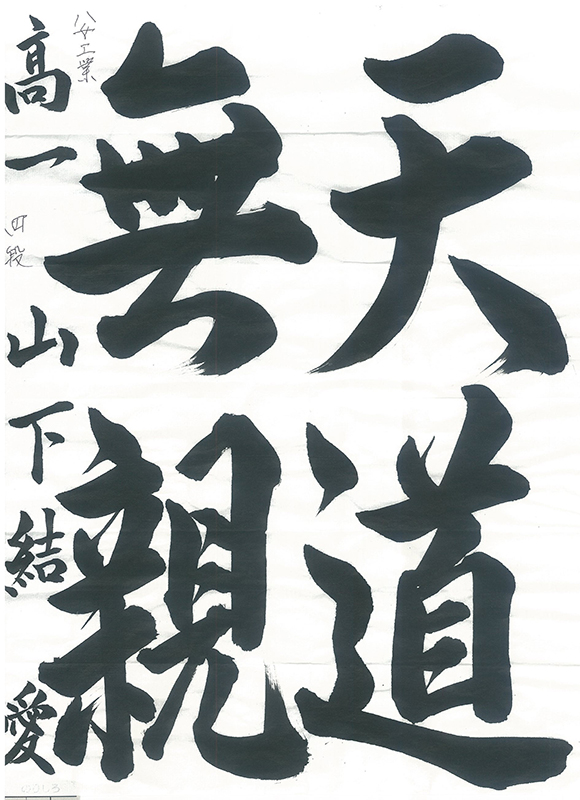 天道
無親
八女工業
高一 四段 山下結愛